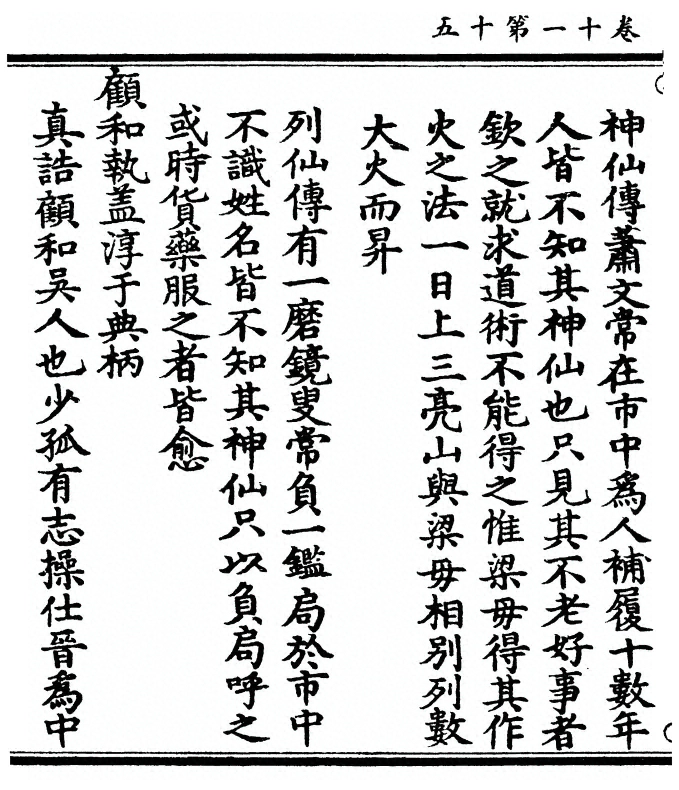 卷十一第十五
神仙傳蕭文常在市中爲人補履十數年
人皆不知其神仙也只見其不老好事者
欽之就求道術不能得之惟梁毋得其作
火之法一日上三亮山與梁毋相别列數
大火而昇
列仙傳有一磨鏡叟常負一鑑局於市中
不識姓名皆不知其神仙只以負局呼之
或時貨藥服之者皆愈
顧和執盖淳于典柄
真誥顧和吳人也少孤有志操仕晉爲中